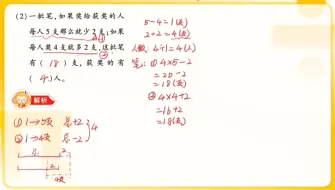 (2)一批笔,如果奖给获奖的人
每人5支那么就少2支;如果
每人奖4支就多2支,这批笔
有( 18 )支,获奖的有
( 4 )人。
解析
(1) 1→5支 总+2
(2) 1→4支 总-2
4
总
2
4支
5-4=1(支)
2+2=4(支)
人数: 4÷1=4(人)
笔: ① 4×5-2
=20-2
=18(支)
② 4×4+2
=16+2
=18(支)